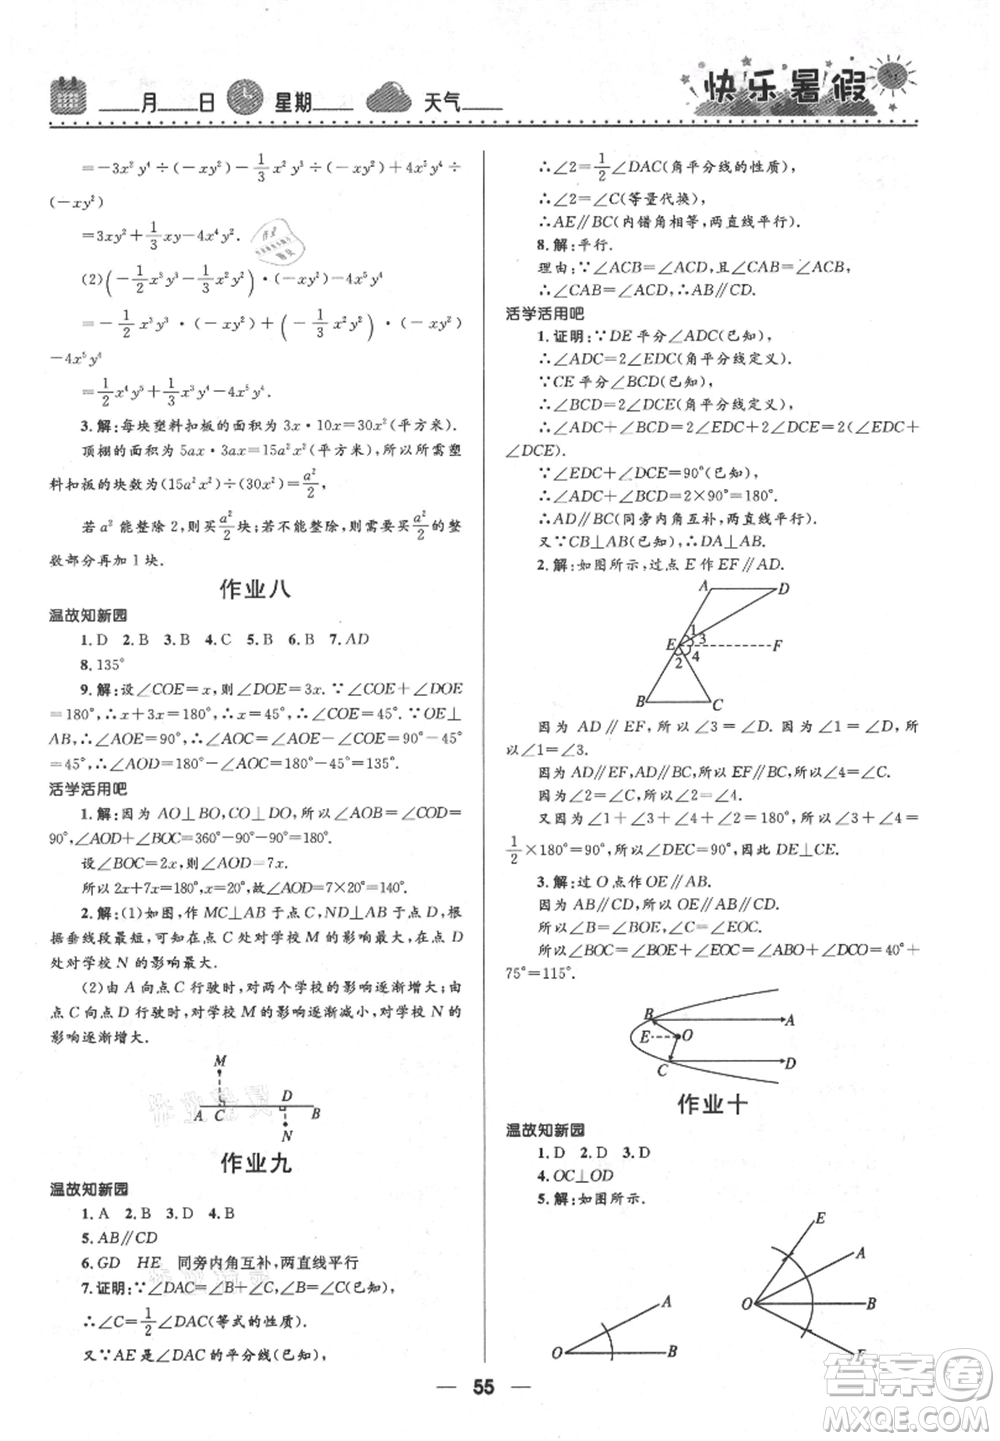 ____月____日 星期____ 天气____
快乐暑假
=-3x²y⁴÷(-xy²)-1/3x²y³÷(-xy²)+4x³y⁴÷
(-xy²)
=3xy²+1/3xy-4x²y².
(2)(-1/2x³y³)·(-xy²)-4x⁵y⁴
=-1/2x³y³·(-xy²)+(-1/3x²y)·(-xy²)
-4x⁵y⁴
=1/2x⁴y⁵+1/3x³y³-4x⁵y⁴.
3.解:每块塑料扣板的面积为3x·10x=30x²(平方米).
顶棚的面积为5ax·3ax=15a²x²(平方米),需要买塑
料扣板的块数为(15a²x²)÷(30x²)=a²/2,
若a²能整除2,则买a²/2块;若不能整除,则需要买a²/2的整
数部分再加1块.
作业八
温故知新园
1.D 2.B 3.B 4.C 5.B 6.B 7.AD
8.135°
9.解:设∠COE=x,则∠DOE=3x.∵∠COE+∠DOE
=180°,∴x+3x=180°,∴x=45°,∴∠COE=45°.∵OE⊥
AB,∴∠AOE=90°,∴∠AOC=∠AOE-∠COE=90°-
45°=45°,∴∠AOD=180°-∠AOC=180°-45°=135°.
活学活用吧
1.解:因为AO⊥BO,CO⊥DO,所以∠AOB=∠COD=
90°,∠AOD+∠BOC=360°-90°-90°=180°.
设∠BOC=2x,则∠AOD=7x.
所以2x+7x=180°,x=20°,故∠AOD=7×20°=140°.
2.解:(1)如图,作MC⊥AB于点C,ND⊥AB于点D,根
据垂线段最短,可知在点C处对学校M的影响最大,在点D
处对学校N的影响最大.
(2)由A向点C行驶时,对两个学校的影响逐渐增大;由
点C向点D行驶时,对学校M的影响逐渐减小,对学校N的
影响逐渐增大.
M
A C D B
N
作业九
温故知新园
1.A 2.B 3.D 4.B
5.AB∥CD
6.GD HE 同旁内角互补,两直线平行
7.证明:∵∠DAC=∠B+∠C,∠B=∠C(已知),
∴∠C=1/2∠DAC(等式的性质).
又∵AE是∠DAC的平分线(已知),
∴∠2=1/2∠DAC(角平分线的性质),
∴∠2=∠C(等量代换),
∴AE∥BC(内错角相等,两直线平行).
8.解:平行.
理由:∵∠ACB=∠ACD,且∠CAB=∠ACB,
∴∠CAB=∠ACD,∴AB∥CD.
活学活用吧
1.证明:∵DE平分∠ADC(已知),
∴∠ADC=2∠EDC(角平分线定义).
∵CE平分∠BCD(已知),
∴∠BCD=2∠DCE(角平分线定义),
∴∠ADC+∠BCD=2∠EDC+2∠DCE=2(∠EDC+
∠DCE).
∵∠EDC+∠DCE=90°(已知),
∴∠ADC+∠BCD=2×90°=180°,
∴DA∥CB(同旁内角互补,两直线平行).
又∵CB⊥AB(已知),∴DA⊥AB.
2.解:如图所示,过点E作EF∥AD.
A D
1
E 3 F
2 4
B C
因为AD∥EF,所以∠3=∠D.又因为∠1=∠D,所
以∠1=∠3.
因为AD∥EF,AD∥BC,所以EF∥BC,所以∠4=∠C.
因为∠2=∠C,所以∠2=∠4.
又因为∠1+∠3+∠2+∠4=180°,所以∠3+∠4=
1/2×180°=90°,所以∠DEC=90°,因此DE⊥CE.
3.解:过O点作OE∥AB.
因为AB∥CD,所以OE∥AB∥CD,
所以∠B=∠BOE,∠C=∠EOC.
所以∠BOC=∠BOE+∠EOC=∠ABO+∠DCO=40°+
75°=115°.
B A
E O
C D
作业十
温故知新园
1.D 2.D 3.D
4.OC⊥OD
5.解:如图所示.
A
O B
E
A
O B
F
55
答案圈
MXQE.COM